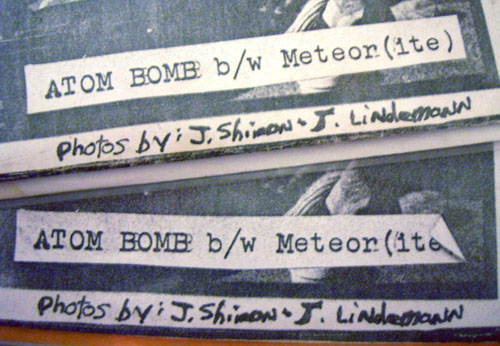 ATOM BOMB b/w Meteor(ite)
photos by: J. Shimon + J. Lindemann
ATOM BOMB b/w Meteor(ite
photos by: J. Shimon + J. Lindemann